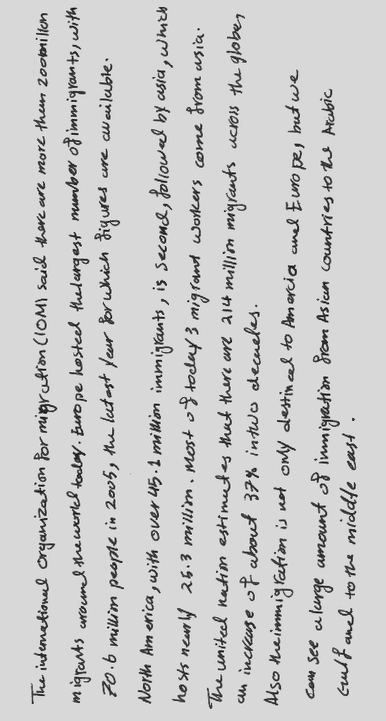 The international Organization for migration (IOM) said there are more than 200 million
migrants around the world today. Europe hosted the largest number of immigrants, with
70.6 million people in 2005, the latest year for which figures are available.
North America, with over 45.1 million immigrants, is second, followed by asia, which
hosts nearly 25.3 million. Most of today's migrand workers come from asia.
The united nation estimates that there are 214 million migrants across the globe,
an increase of about 37% in two decades.
Also the immigration is not only destined to America and Europe, but we
can see a large amount of immigration from Asian countries to the Arabic
Gulf and to the middle east.